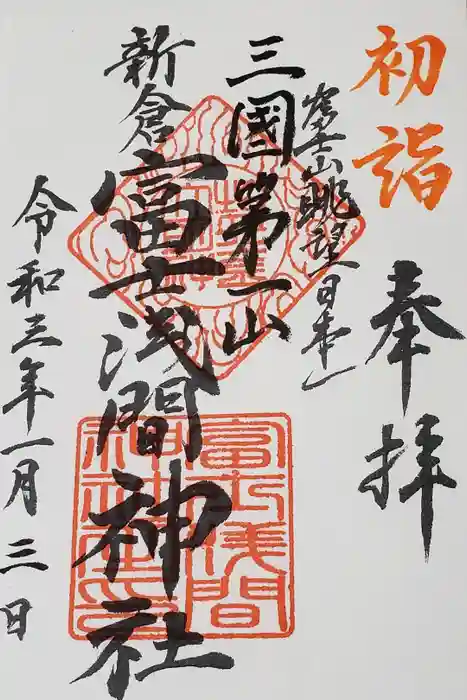 初詣
奉拝
富士山眺望日本一
三國第一山
新倉富士浅間神社
令和三年一月三日
富士浅間
神社